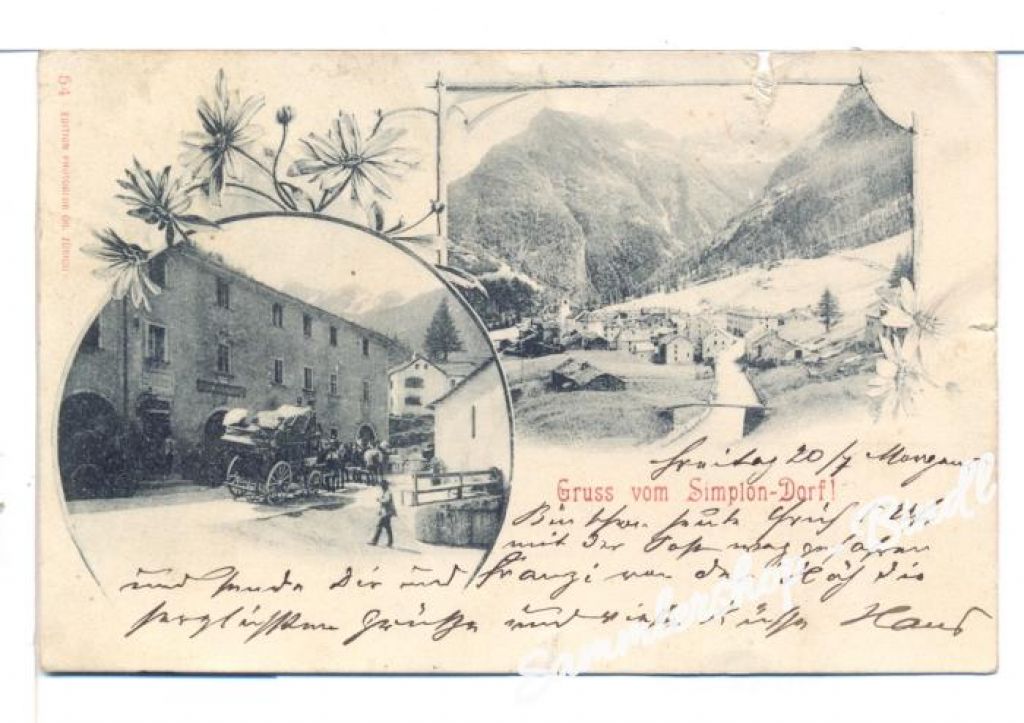 54 EDITION PHOTOGLOB Co. ZÜRICH
Gruss vom Simplon-Dorf!
Freitag 20/7 Morgen
Bin schon heute früh
mit der Post weg gefahren
und sende Dir und Franzi von der Höh die
herzlichsten Grüße und viele Küsse Hans
Sammlershop-Bindl